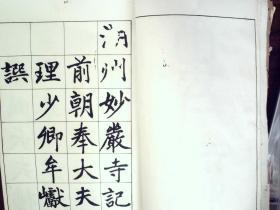 湖州妙嚴寺記
前朝奉大夫
理少卿牟巘
譔